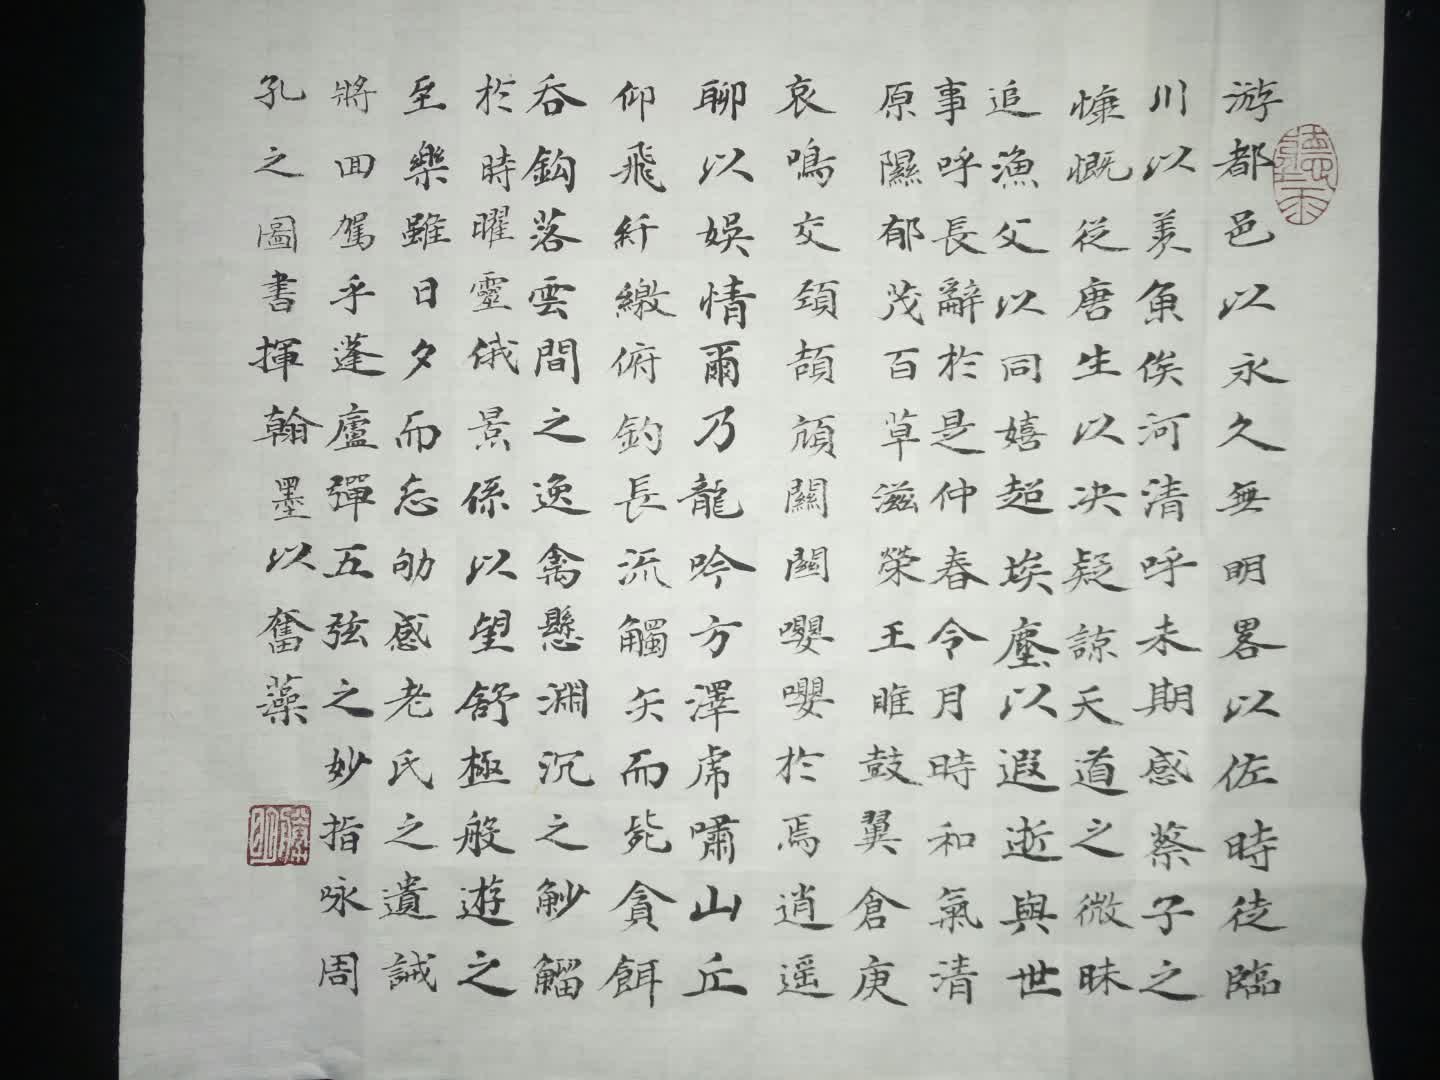 游都邑以永久無明畧以佐時徒臨
川以羡魚俟河清呼未期感蔡子之
慷慨從唐生以决疑諒天道之微昧
追漁父以同嬉超埃塵以遐逝與世
事呼長辭於是仲春令月時和氣清
原隰郁茂百草滋榮王雎鼓翼倉庚
哀鳴交頸頡頏關關嚶嚶於焉逍遥
聊以娛情爾乃龍吟方澤虎嘯山丘
仰飛纤繳俯釣長流觸矢而毙貪餌
吞鈎落雲間之逸禽懸淵沉之魦鰡
於時曜靈俄景係以望舒極般遊之
至樂雖日夕而忘劬感老氏之遺誡
將回駕乎蓬廬彈五弦之妙指咏周
孔之圖書揮翰墨以奮藻